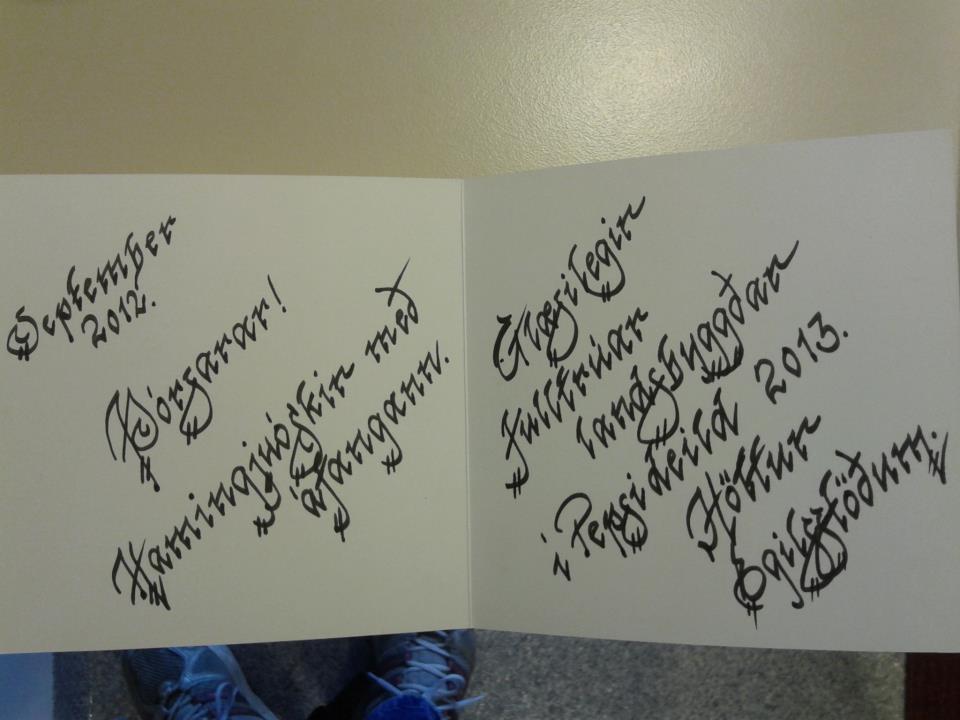 September
2012.
Þórsarar!
Hamingjuóskir með
áfangann.
Glæsilegir
fulltrúar
landsbyggðar
í Pepsideild 2013.
Höttur
Egilsstöðum.